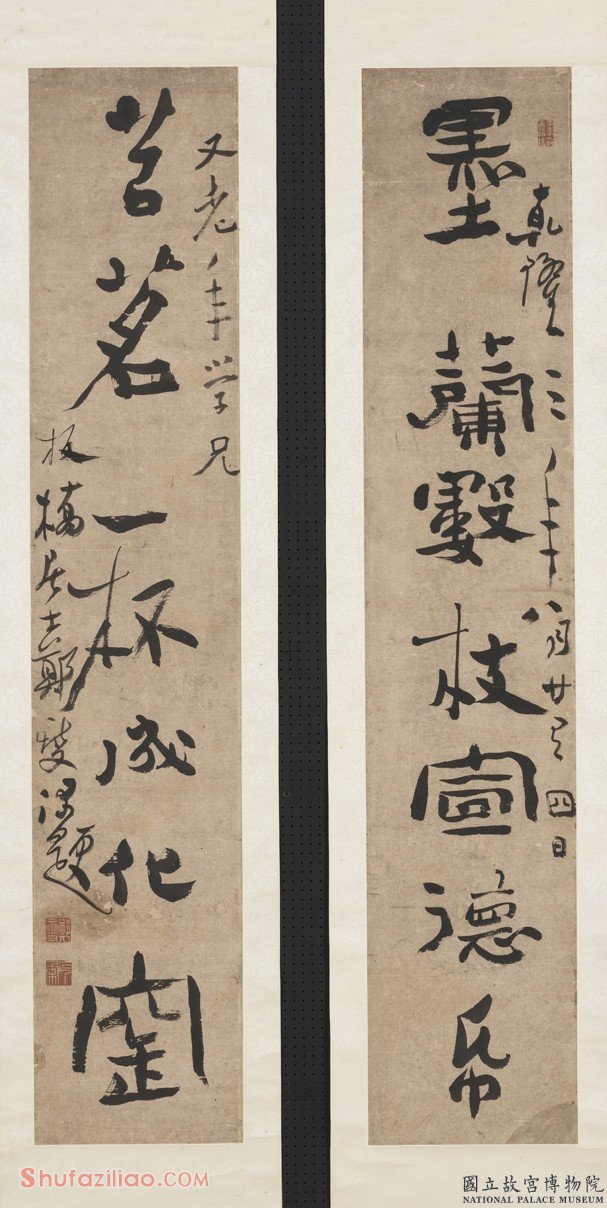 墨蘭數枝宣德帋
乾隆年八月廿四日
苦茗一杯成化窑
又老年学兄
板橋居士鄭燮題
Shufaziliao.COM
國立故宮博物院
NATIONAL PALACE MUSEUM